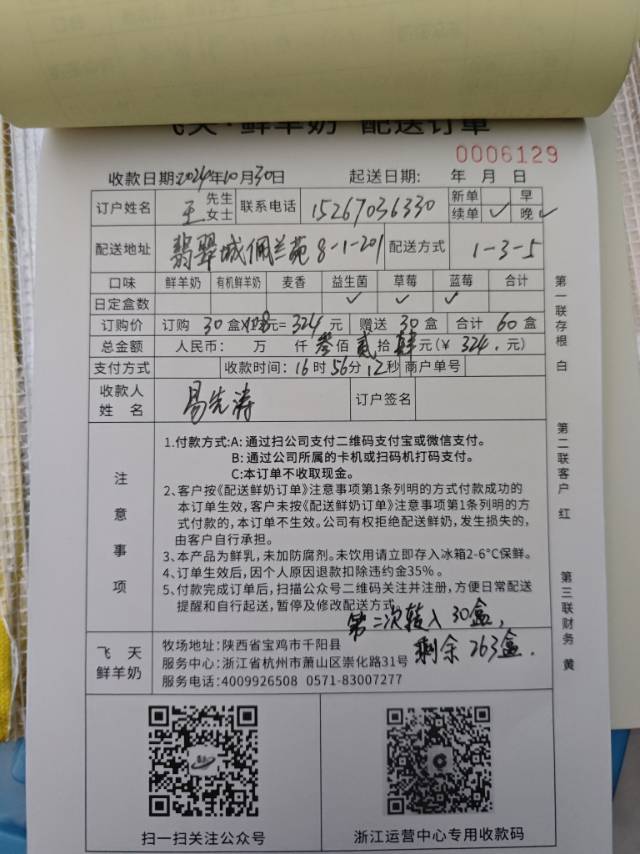 飞天·鲜羊奶 配送订单
0006129
收款日期:2024年10月30日 起送日期: 年 月 日
订户姓名 王 先生 女士 联系电话 15267036330 新单 续单 ✓ 早 晚 ✓
配送地址 翡翠城佩兰苑8-1-201 配送方式 1-3-5
口味 鲜羊奶 有机鲜羊奶 麦香 益生菌 草莓 蓝莓 合计
日定盒数 ✓ ✓ ✓
订购价 订购 30盒×10.8元=324元 赠送 30盒 合计 60盒
总金额 人民币: 万 仟 叁佰 贰拾 肆元(¥ 324. 元)
支付方式 收款时间:16时56分12秒 商户单号
收款人姓名 易先涛 订户签名
注意事项
1.付款方式:A: 通过扫公司支付二维码支付宝或微信支付。
B: 通过公司所属的卡机或扫码机打码支付。
C:本订单不收取现金。
2、客户按《配送鲜奶订单》注意事项第1条列明的方式付款成功的
本订单生效，客户未按《配送鲜奶订单》注意事项第1条列明的方
式付款的，本订单不生效。公司有权拒绝配送鲜奶，发生损失的，
由客户自行承担。
3、本产品为鲜乳，未加防腐剂。未饮用请立即存入冰箱2-6°C保鲜。
4、订单生效后，因个人原因退款扣除违约金35% 。
5、付款完成订单后，扫描公众号二维码关注并注册，方便日常配送
提醒和自行起送，暂停及修改配送方式
第二次转入30盒，
剩余263盒.
飞天鲜羊奶
牧场地址:陕西省宝鸡市千阳县
服务中心:浙江省杭州市萧山区崇化路31号
服务电话:4009926508 0571-83007277
扫一扫关注公众号
浙江运营中心专用收款码
第一联存根 白
第二联客户 红
第三联财务 黄